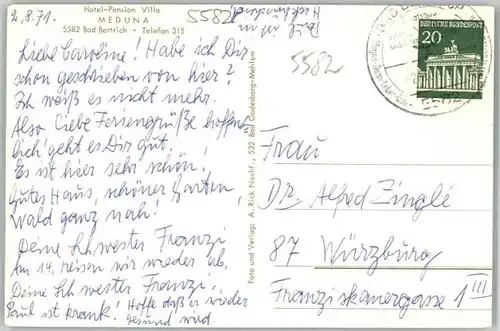 2.8.71.
Hotel-Pension Villa
MEDUNA
5582 Bad Bertrich • Telefon 315
5582
Liebe Caroline! Habe ich Dir
schon geschrieben von hier?
Ich weiß es nicht mehr.
Also liebe Feriengrüße hoffent
lich geht es Dir gut!
Es ist hier sehr schön,
gutes Haus, schöner Garten,
Wald ganz nah!
Deine Schwester Franzi
Am 14. reisen wir wieder ab.
Deine Schwester Franzi.
Paul ist krank! Hoffe daß er wieder
gesund wird.
Foto und Verlag: A. Rick Nachf., 532 Bad Godesberg-Mehlem
5582
DEUTSCHE BUNDESPOST
20
5582
Frau
Dr. Alfred Zinglé
87 Würzburg
Franziskanergasse 1 III